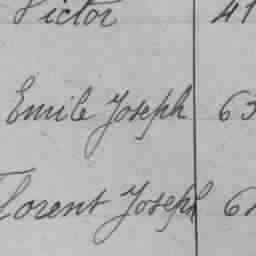 Victor 41
Emile Joseph 63
Florent Joseph